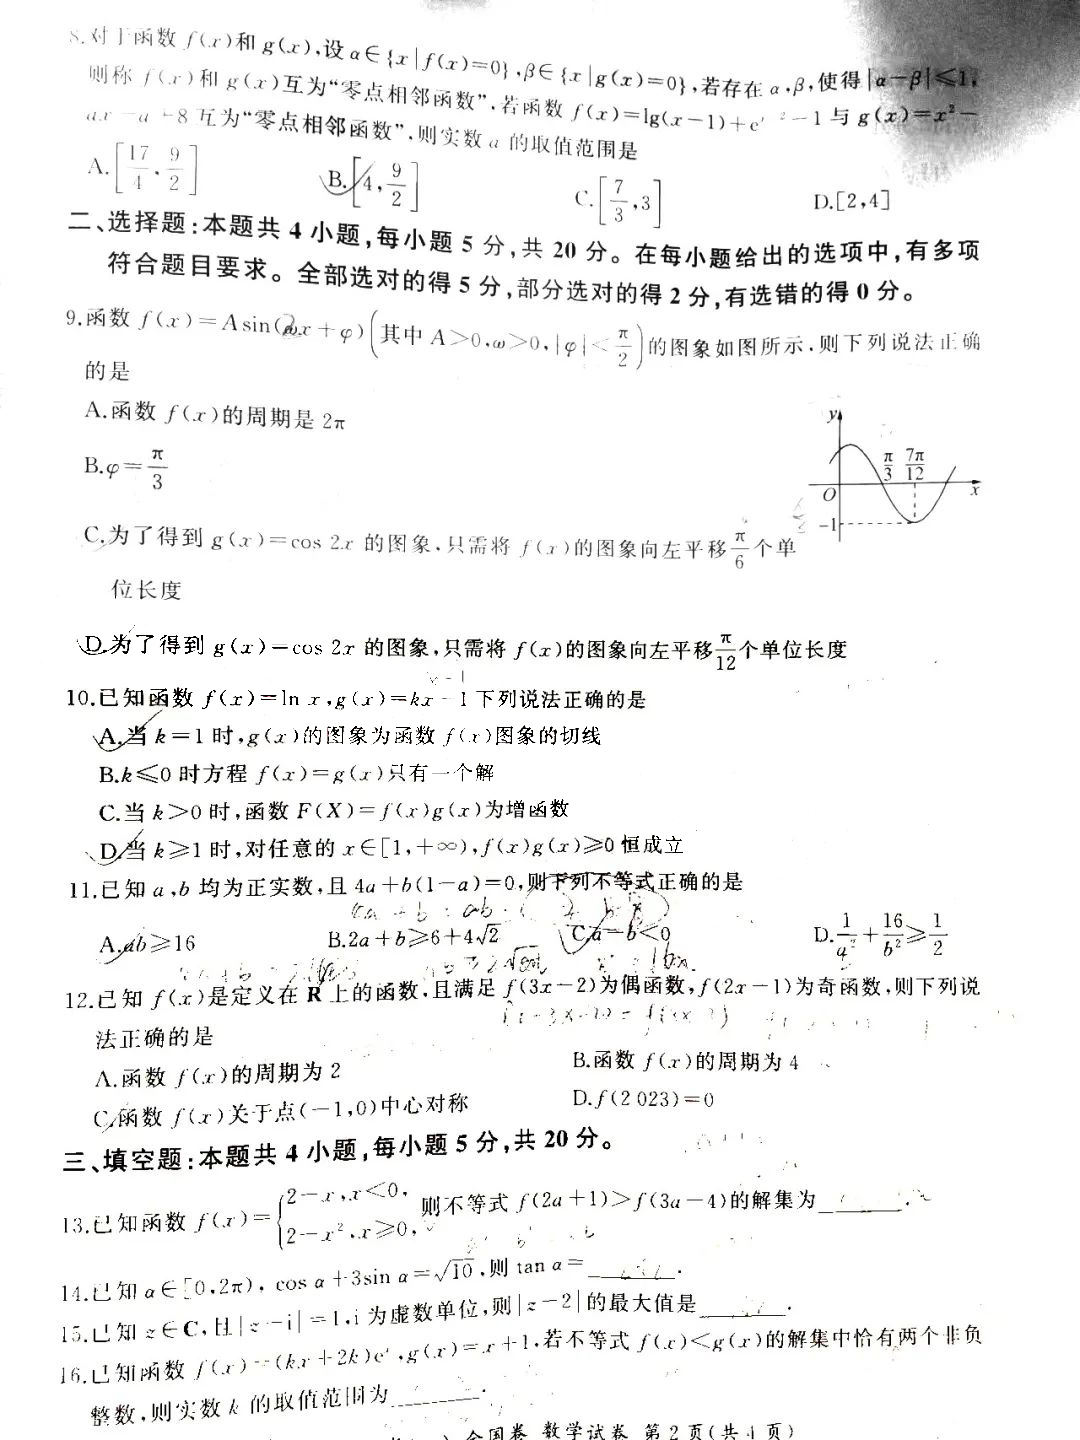 8.对于函数 f(x)和 g(x),设 α∈{x|f(x)=0},β∈{x|g(x)=0},若存在 α,β,使得|α-β|≤1,
则称 f(x)和 g(x)互为“零点相邻函数”,若函数 f(x)=lg(x-1)+e^{x-2}-1 与 g(x)=x²-
ax-a+8 互为“零点相邻函数”,则实数 a 的取值范围是
A.[17/4,9/2] B.[4,9/2] C.[7/3,3] D.[2,4]
二、选择题:本题共 4 小题,每小题 5 分,共 20 分。在每小题给出的选项中,有多项
符合题目要求。全部选对的得 5 分,部分选对的得 2 分,有选错的得 0 分。
9.函数 f(x)=Asin(ωx+φ)(其中 A>0,ω>0,|φ|<π/2)的图象如图所示,则下列说法正确
的是
A.函数 f(x)的周期是 2π
B.φ=π/3
y
π/3 7π/12
O x
-1
C.为了得到 g(x)=cos 2x 的图象,只需将 f(x)的图象向左平移π/6个单
位长度
D.为了得到 g(x)=cos 2x 的图象,只需将 f(x)的图象向左平移π/12个单位长度
10.已知函数 f(x)=ln x,g(x)=kx-1下列说法正确的是
A.当 k=1 时,g(x)的图象为函数 f(x)图象的切线
B.k≤0 时方程 f(x)=g(x)只有一个解
C.当 k>0 时,函数 F(X)=f(x)g(x)为增函数
D.当 k≥1 时,对任意的 x∈[1,+∞),f(x)g(x)≥0 恒成立
11.已知 a,b 均为正实数,且 4a+b(1-a)=0,则下列不等式正确的是
A.ab≥16 B.2a+b≥6+4√2 C.a-b<0 D.1/a²+16/b²≥1/2
12.已知 f(x)是定义在 R 上的函数,且满足 f(3x-2)为偶函数,f(2x-1)为奇函数,则下列说
法正确的是
A.函数 f(x)的周期为 2 B.函数 f(x)的周期为 4
C.函数 f(x)关于点(-1,0)中心对称 D.f(2 023)=0
三、填空题:本题共 4 小题,每小题 5 分,共 20 分。
13.已知函数 f(x)={2-x,x<0, 2-x²,x≥0, 则不等式 f(2a+1)>f(3a-4)的解集为______.
14.已知 α∈[0,2π), cos α+3sin α=√10,则 tan α=______.
15.已知 z∈C,且|z-i|=1,i 为虚数单位,则|z-2|的最大值是______.
16.已知函数 f(x)=(kx+2k)e^x,g(x)=x+1,若不等式 f(x)<g(x)的解集中恰有两个非负
整数,则实数 k 的取值范围为______.
全国卷 数学试卷 第 2 页(共 4 页)